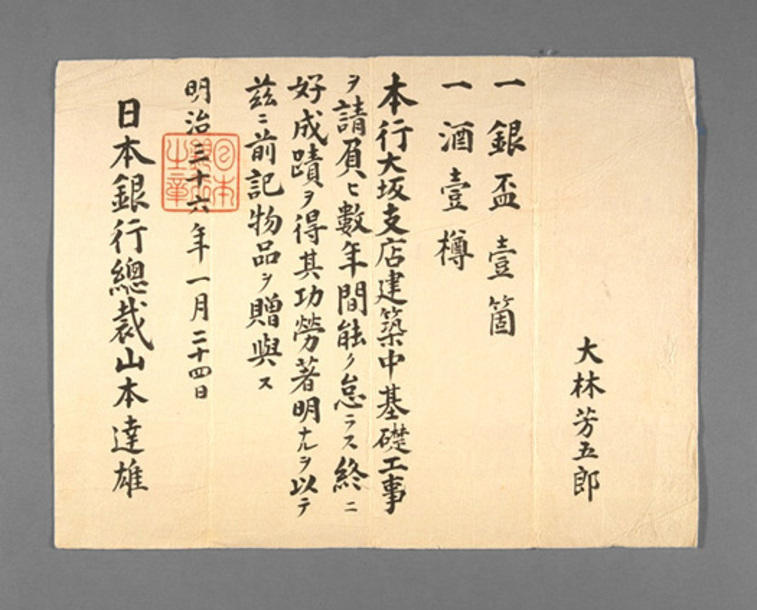 大林芳五郎
一銀盃壹箇
一酒壹樽
本行大坂支店建築中基礎工事
ヲ請負ヒ數年間能ク怠ラス終ニ
好成蹟ヲ得其功勞著明ナルヲ以テ
茲ニ前記物品ヲ贈與ス
明治三十六年一月二十四日
日本銀行總裁山本達雄